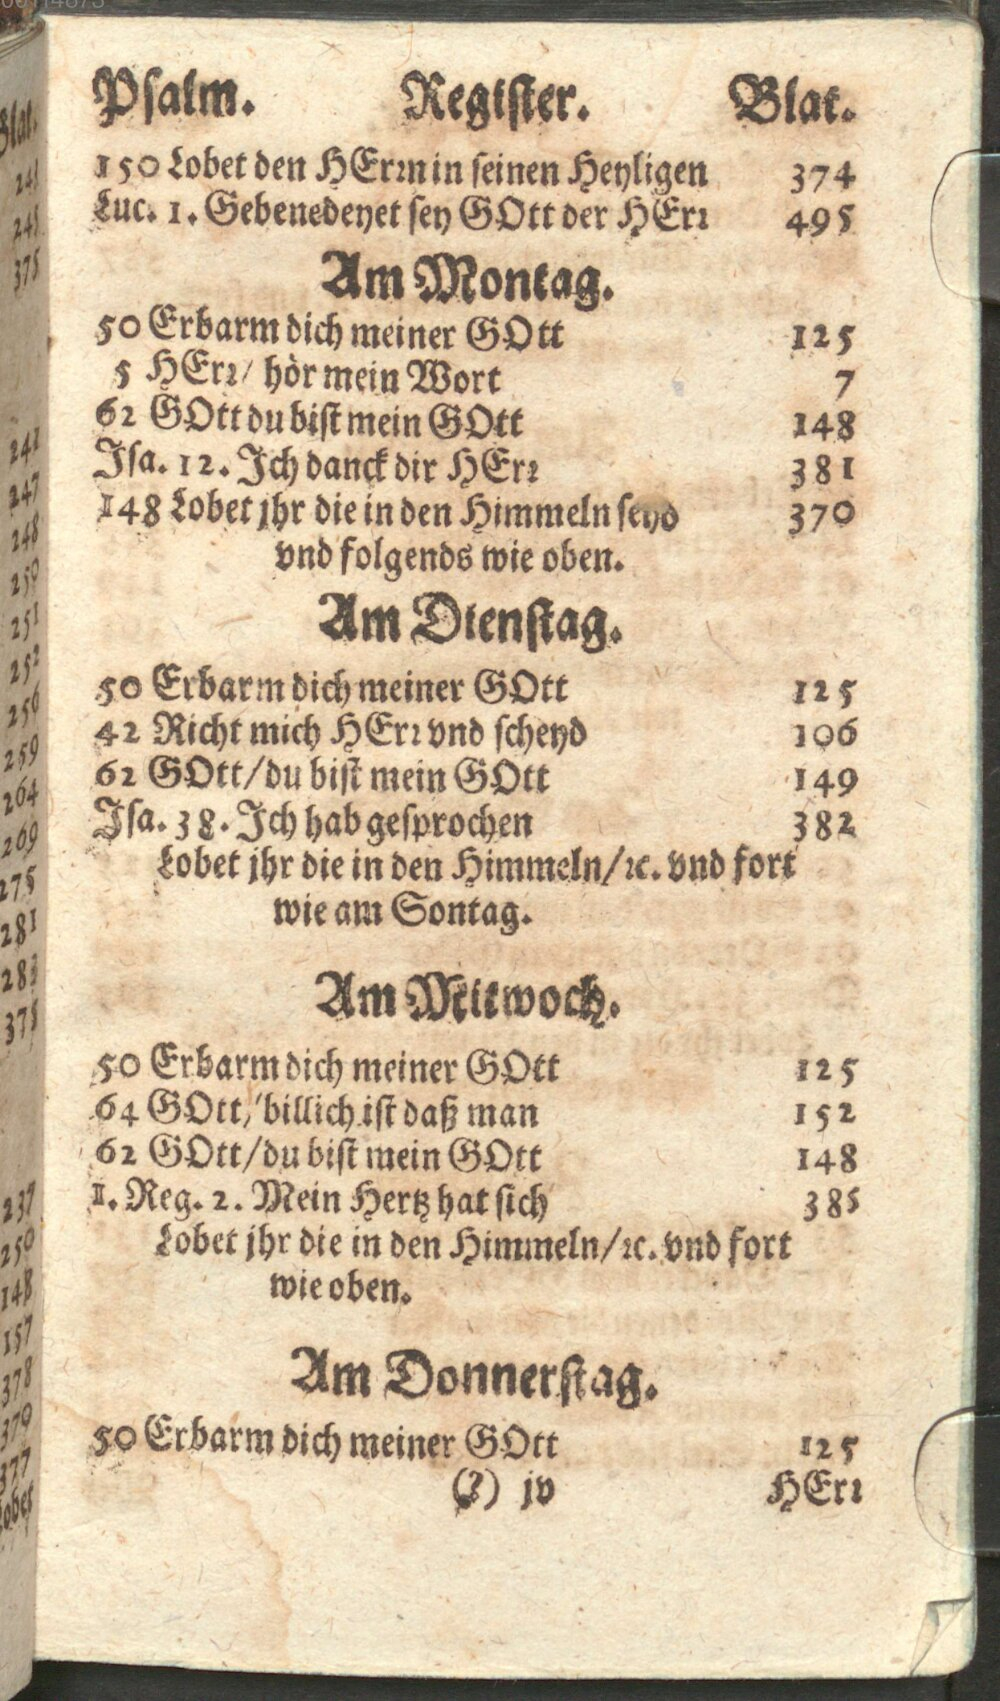 Psalm. Register. Blat.
150 Lobet den HErrn in seinen Heyligen 374
Luc. 1. Gebenedeyet sey GOtt der HErr 495
Am Montag.
50 Erbarm dich meiner GOtt 125
5 HErr/ hör mein Wort 7
62 GOtt du bist mein GOtt 148
Isa. 12. Ich danck dir HErr 381
148 Lobet jhr die in den Himmeln seyd 370
vnd folgends wie oben.
Am Dienstag.
50 Erbarm dich meiner GOtt 125
42 Richt mich HErr vnd scheyd 106
62 GOtt/du bist mein GOtt 149
Isa. 38. Ich hab gesprochen 382
Lobet jhr die in den Himmeln/ꝛc. vnd fort
wie am Sontag.
Am Mitwoch.
50 Erbarm dich meiner GOtt 125
64 GOtt/billich ist daß man 152
62 GOtt/du bist mein GOtt 148
I. Reg. 2. Mein Hertz hat sich 385
Lobet jhr die in den Himmeln/ꝛc. vnd fort
wie oben.
Am Donnerstag.
50 Erbarm dich meiner GOtt 125
(?) jv HErr
241
247
248
250
251
252
256
259
264
269
275
281
283
375
237
250
148
157
378
379
377